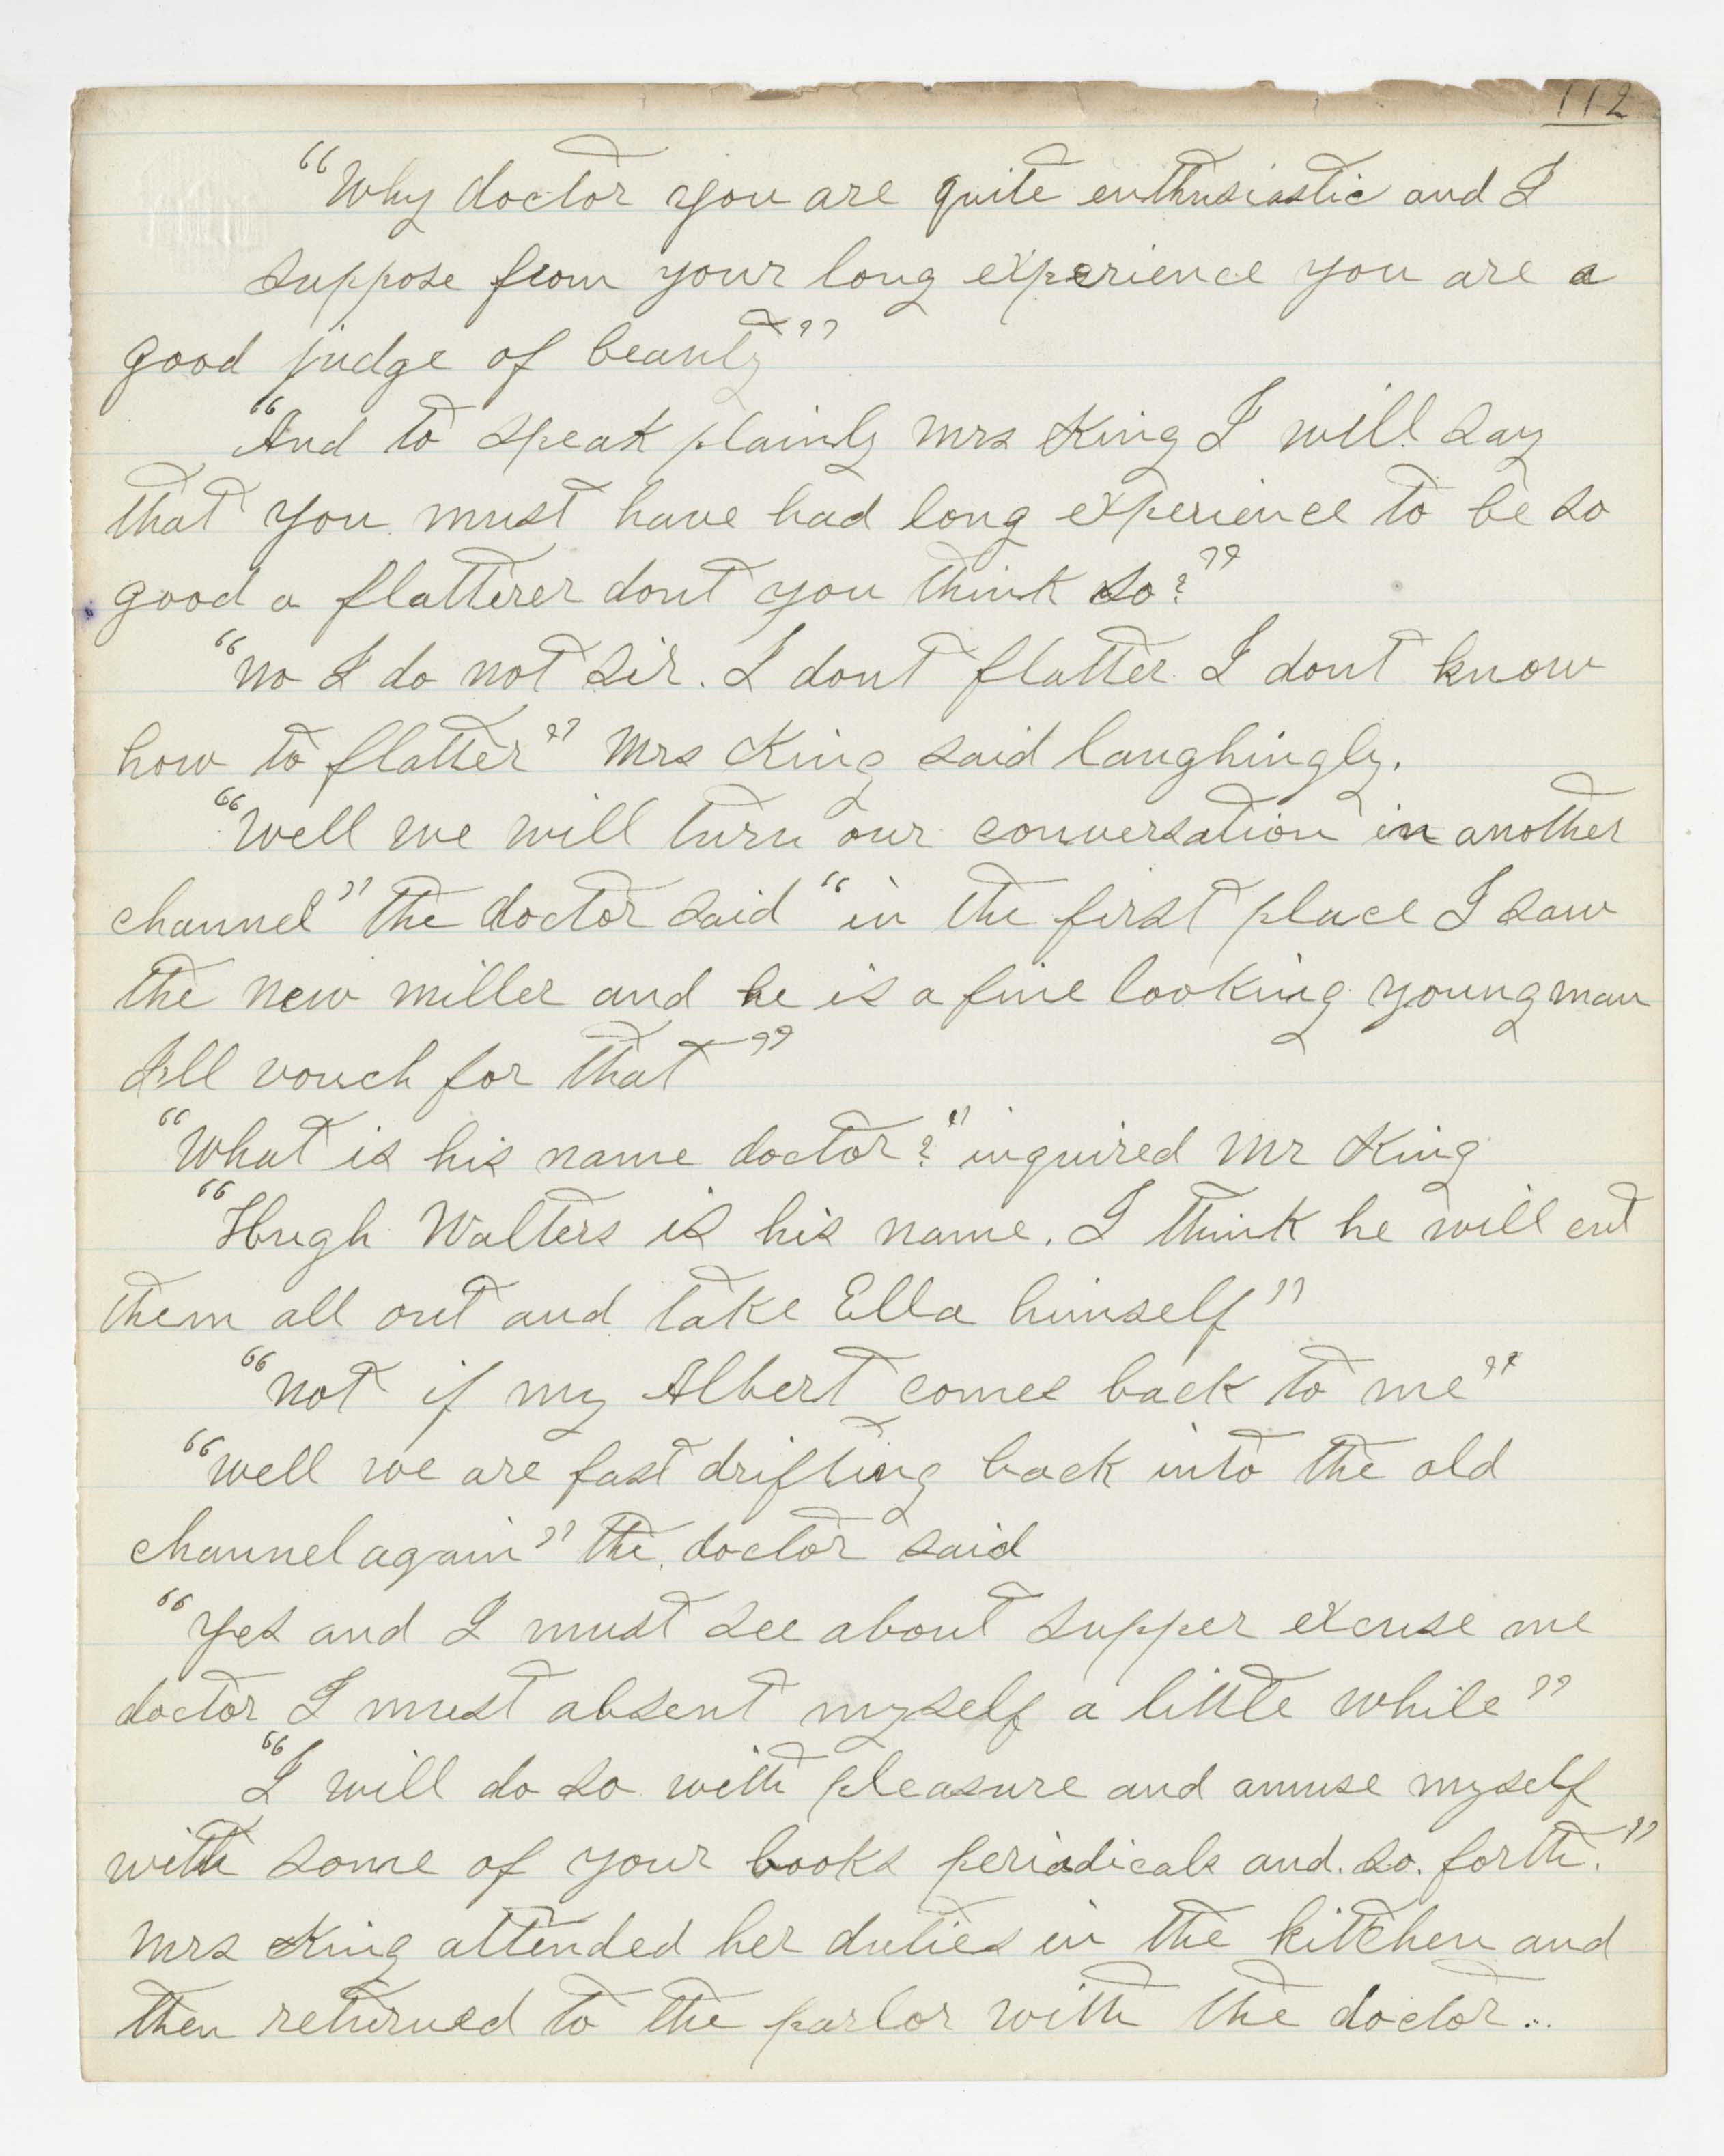 112
“Why doctor you are quite enthusiastic and I
suppose from your long experience you are a
good judge of beauty”
“And to speak plainly Mrs King I will say
that you must have had long experience to be so
good a flatterer dont you think so?”
“No I do not sir. I dont flatter. I dont know
how to flatter” Mrs King said laughingly.
“Well we will turn our conversation in another
channel” the doctor said “in the first place I saw
the new miller and he is a fine looking young man
Ill vouch for that”
“What is his name doctor?” inquired Mr King
“Hugh Walters is his name. I think he will cut
them all out and take Ella himself”
“Not if my Albert comes back to me”
“Well we are fast drifting back into the old
channel again” the doctor said
“Yes and I must see about supper excuse me
doctor I must absent myself a little while”
“I will do so with pleasure and amuse myself
with some of your books periadicals and. so. forth.”
Mrs King attended her duties in the kitchen and
then returned to the parlor with the doctor..